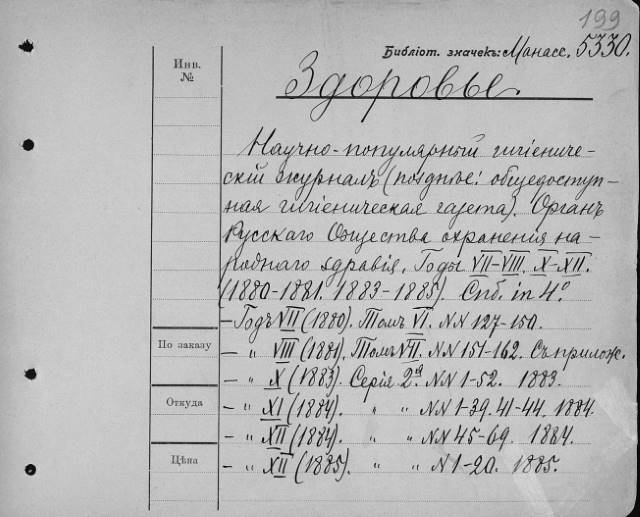 199
Библіот. значекъ: Манасс. 5330.
Инв.
№
Здоровье.
Научно-популярный гигіениче-
скій журналъ (позднѣе: общедоступ-
ная гигіеническая газета). Органъ
Русскаго Общества охраненія на-
роднаго здравія. Годы VII-VIII. X-XII.
(1880-1881. 1883-1885). Спб. in 4°.
- Годъ VII (1880). Томъ VI. NN 127-150.
По заказу
- " VIII (1881). Томъ VII. NN 151-162. Съ прилож.
- " X (1883). Серія 2я. NN 1-52. 1883.
Откуда
- " XI (1884). " " NN 1-39. 41-44. 1884.
- " XII (1884). " " NN 45-69. 1884.
Цѣна
- " XII (1885). " " N 1-20. 1885.